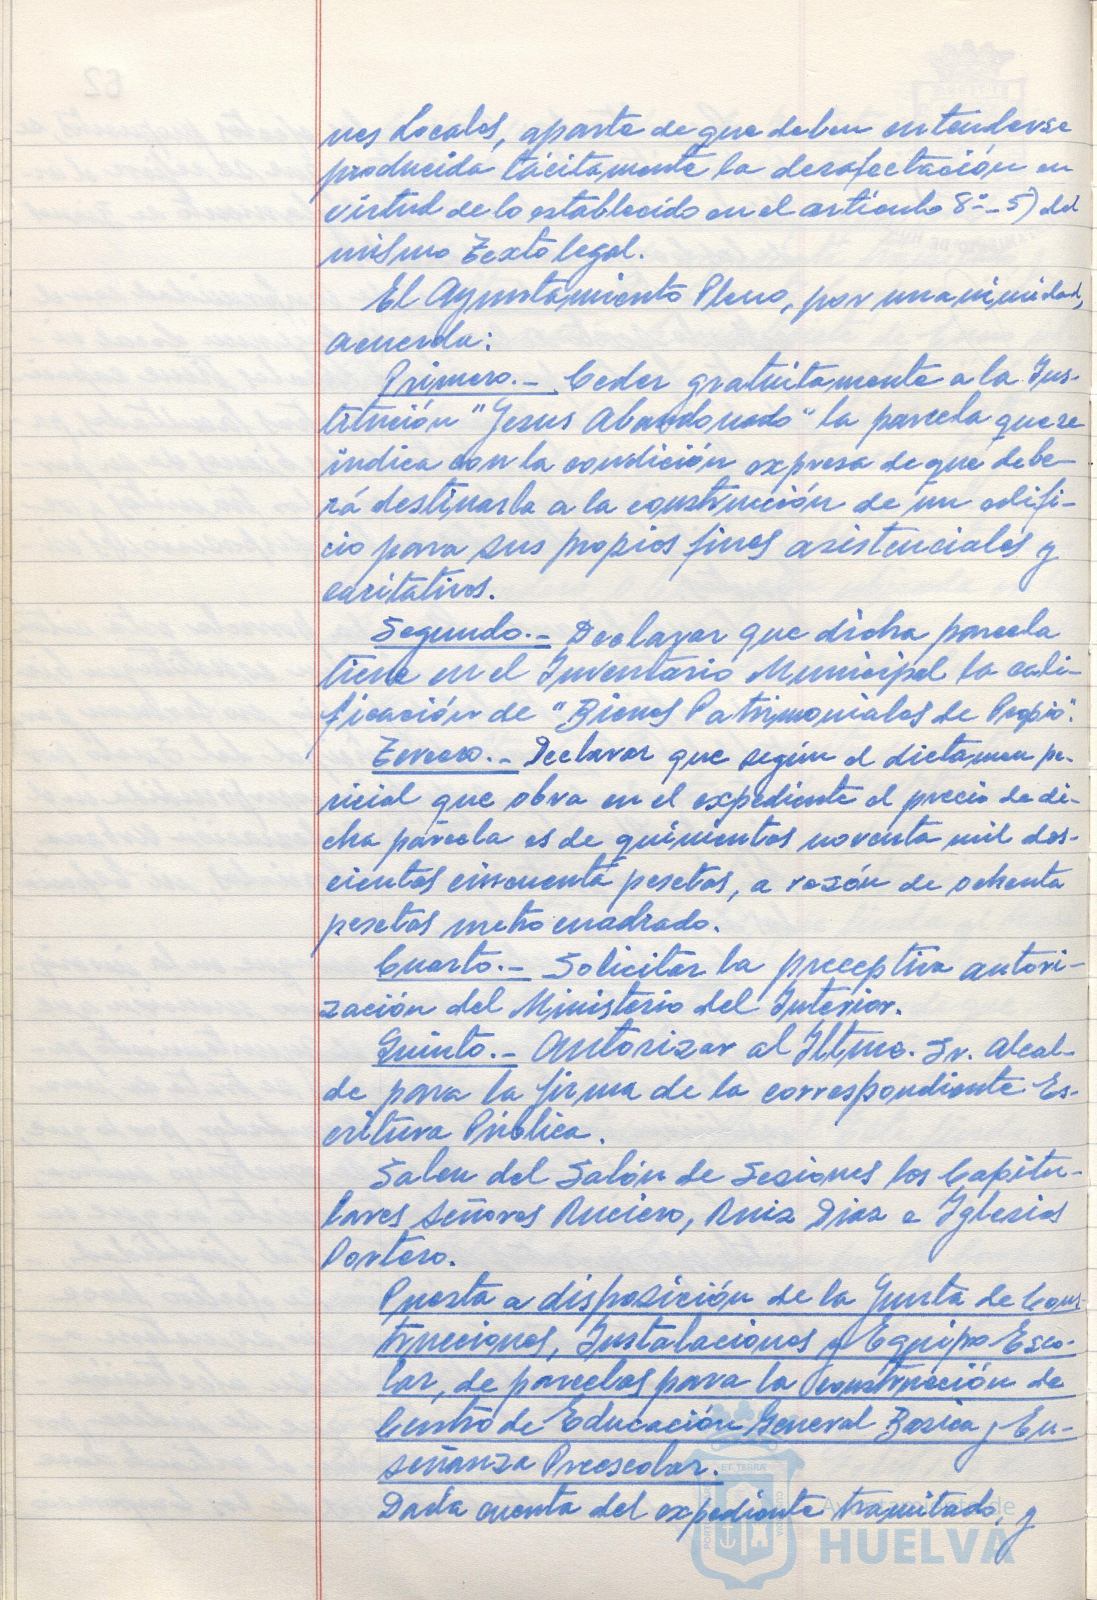 nes Locales, aparte de que deben entenderse
producida tácitamente la desafectación en
virtud de lo establecido en el artículo 8º-5) del
mismo Texto legal.
El Ayuntamiento Pleno, por unanimidad,
acuerda:
Primero.- Ceder gratuitamente a la Ins-
titución "Jesus Abandonado" la parcela que se
indica con la condición expresa de que debe-
rá destinarla a la construcción de un edifi-
cio para sus propios fines asistenciales y
caritativos.
Segundo.- Declarar que dicha parcela
tiene en el Inventario Municipal la cali-
ficación de "Bienes Patrimoniales de Propio".
Tercero.- Declarar que según el dictamen pe-
ricial que obra en el expediente el precio de di-
cha parcela es de quinientos noventa mil dos-
cientas cincuenta pesetas, a razón de ochenta
pesetas metro cuadrado.
Cuarto.- Solicitar la preceptiva autori-
zación del Ministerio del Interior.
Quinto.- Autorizar al Iltmo. Sr. Alcal-
de para la firma de la correspondiente Es-
critura Pública.
Salen del Salón de Sesiones los Capitu-
lares señores Ruciero, Ruiz Diaz e Iglesias
Portero.
Puesta a disposición de la Junta de Cons
trucciones, Instalaciones y Equipo Esco-
lar, de parcelas para la construcción de
Centro de Educación General Basica y En-
señanza Preescolar.
Dada cuenta del expediente tramitado, y
ET TERRA
Ayuntamiento de
HUELVA